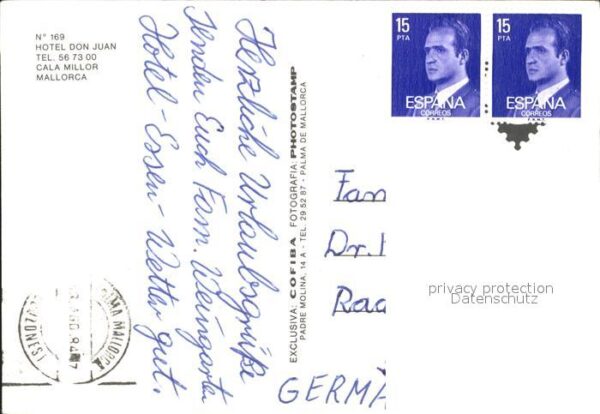 N° 169
HOTEL DON JUAN
TEL. 56 73 00
CALA MILLOR
MALLORCA
Herzliche Urlaubsgrüße
senden Euch Fam. Weingarten
Hotel-Essen-Wetter gut.
EXCLUSIVA: COFIBA FOTOGRAFIA: PHOTOSTAMP
PADRE MOLINA, 14 A - TEL. 29 52 87 - PALMA DE MALLORCA
15
PTA
ESPAÑA
CORREOS
15
PTA
ESPAÑA
CORREOS
Fam
Dr.
Raa
GERMA
privacy protection
Datenschutz
MALLORCA